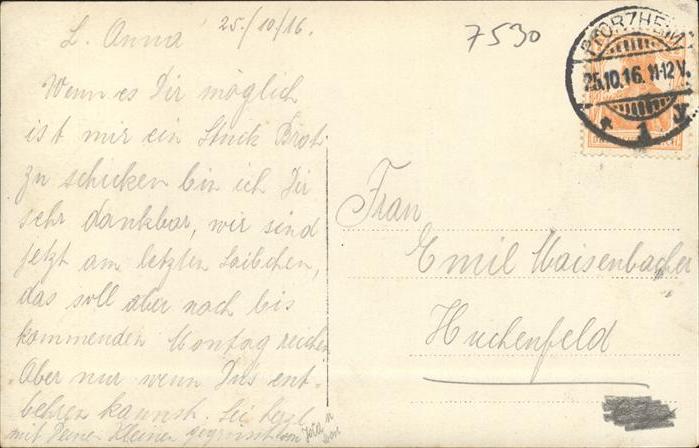 25./10/16.
L. Anna
Wenn es Dir möglich
ist mir ein Stück Brot
zu schicken bin ich Dir
sehr dankbar, wir sind
jetzt am letzten Laibchen,
das soll aber noch bis
kommenden Montag reichen
Aber nur wenn Du's ent-
behren kannst. Sei herzl.
mit Deiner Kleinen gegrüsst von
7530
PFORZHEIM
25.10.16. 11-12 V.
* 1 y
Frau
Emil Maisenbacher
Huchenfeld